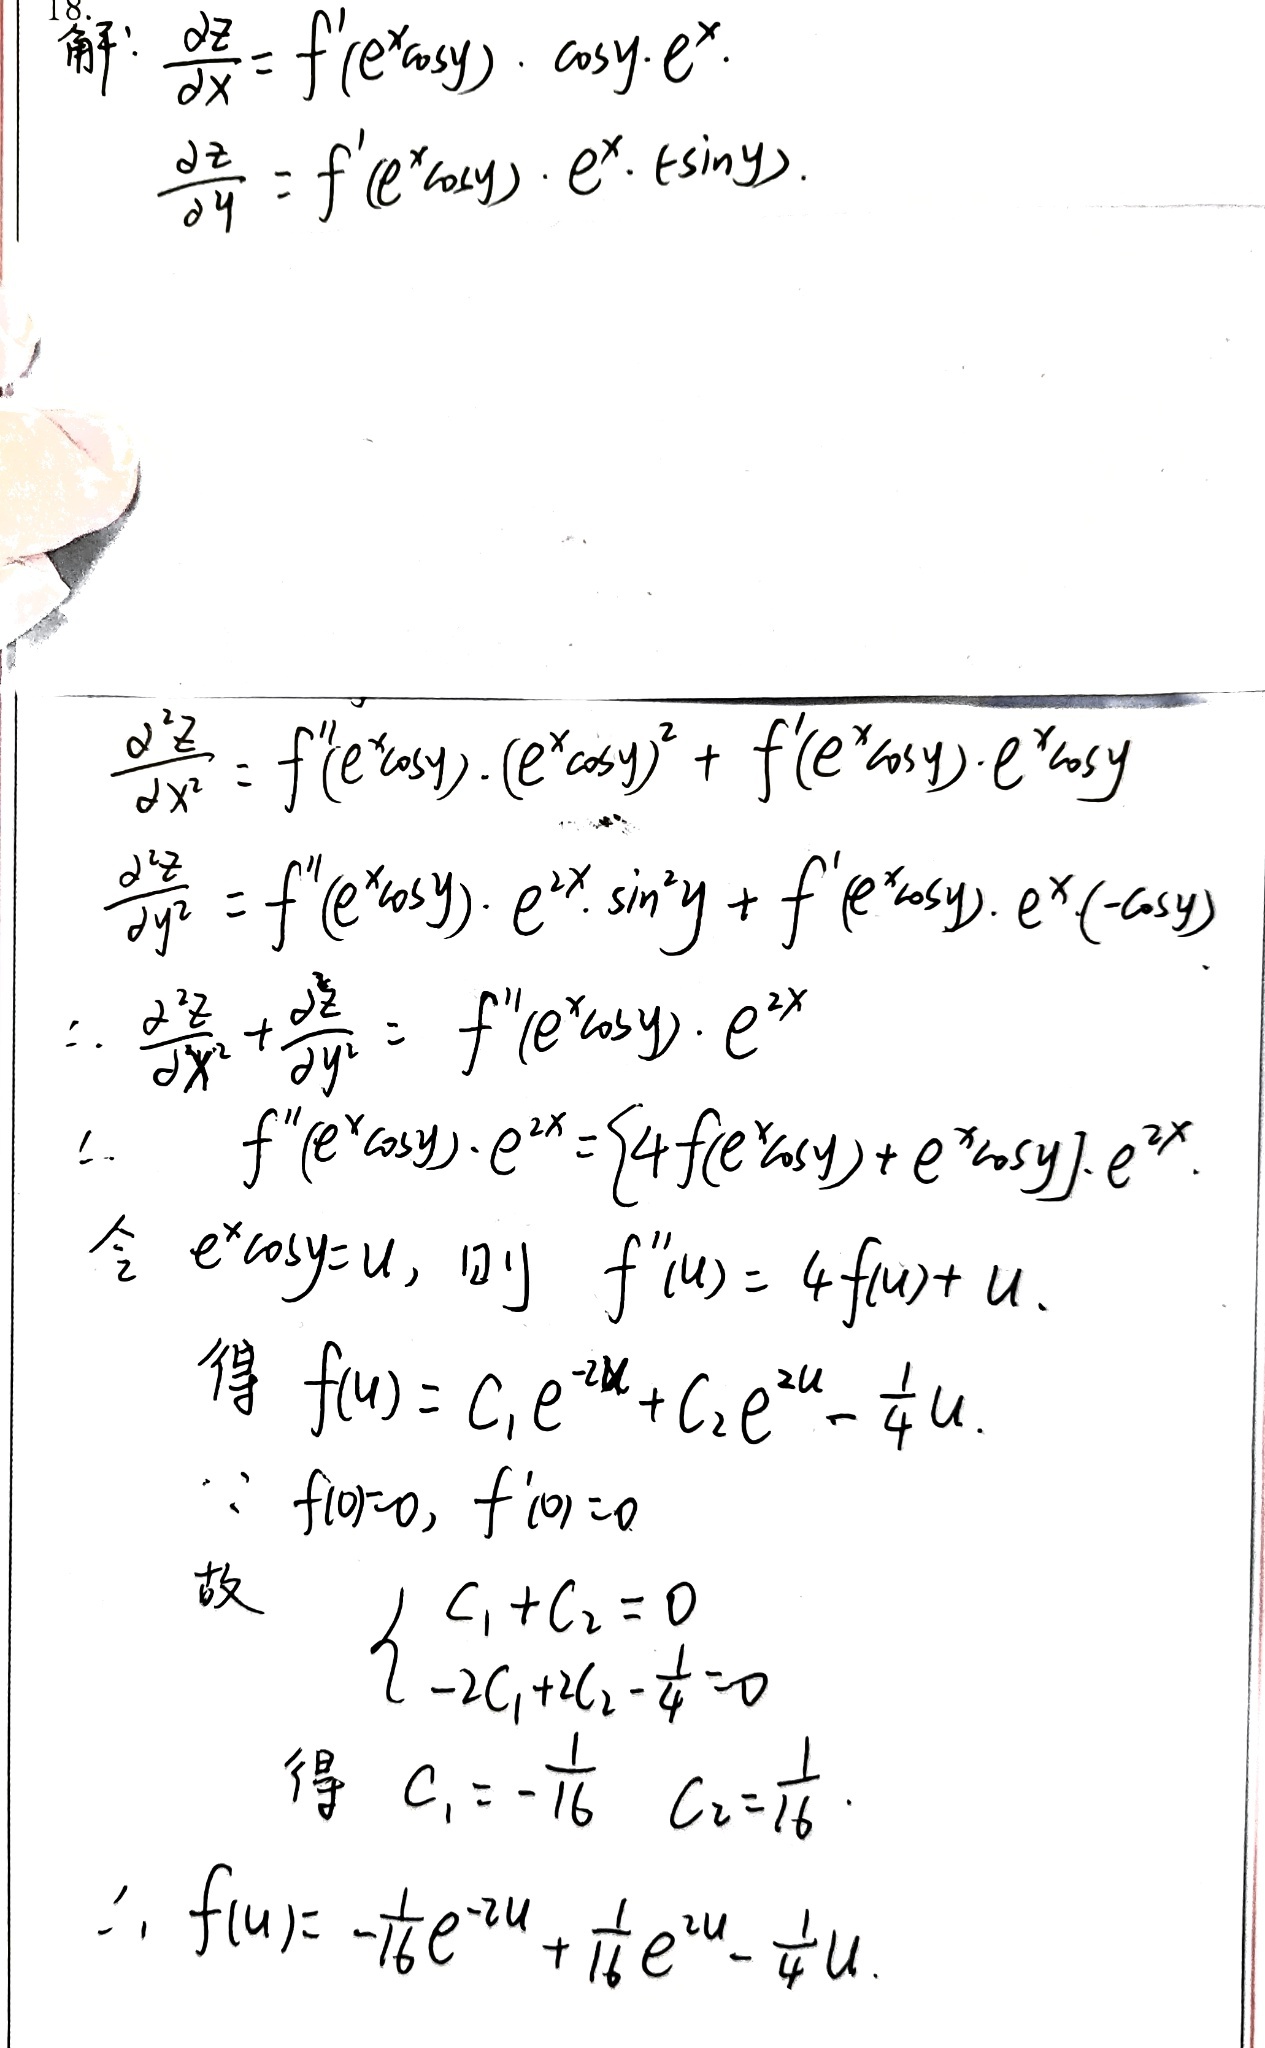 18.
解: ∂z/∂x = f'(e^x cosy) · cosy · e^x.
∂z/∂y = f'(e^x cosy) · e^x · (-siny).
∂²z/∂x² = f''(e^x cosy) · (e^x cosy)² + f'(e^x cosy) · e^x cosy
∂²z/∂y² = f''(e^x cosy) · e^{2x} · sin²y + f'(e^x cosy) · e^x · (-cosy)
∴ ∂²z/∂x² + ∂²z/∂y² = f''(e^x cosy) · e^{2x}
∴ f''(e^x cosy) · e^{2x} = [4f(e^x cosy) + e^x cosy] · e^{2x}.
令 e^x cosy = u, 则 f''(u) = 4f(u) + u.
得 f(u) = C₁e^{-2u} + C₂e^{2u} - 1/4 u.
∵ f(0)=0, f'(0)=0
故 { C₁ + C₂ = 0
-2C₁ + 2C₂ - 1/4 = 0
得 C₁ = -1/16 C₂ = 1/16.
∴ f(u) = -1/16 e^{-2u} + 1/16 e^{2u} - 1/4 u.